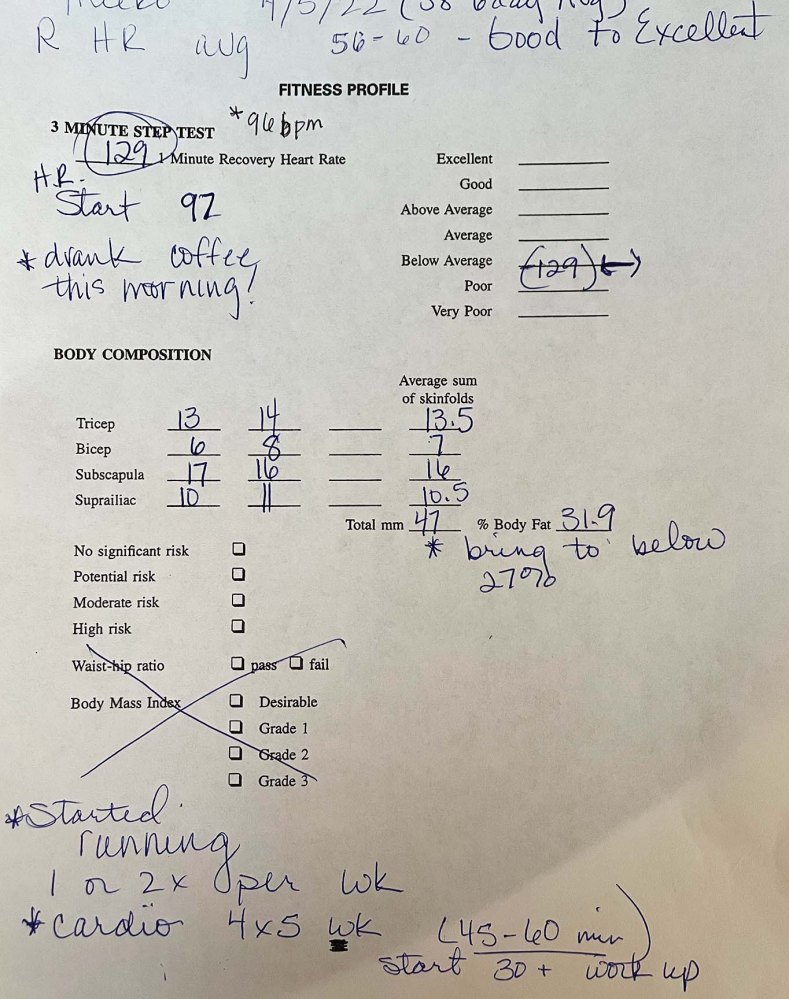 4/5/22 (38
R HR avg 56-60 - Good to Excellent
FITNESS PROFILE
3 MINUTE STEP TEST *96 bpm
129 1 Minute Recovery Heart Rate
H.R.
Start 92
* drank coffee
this morning!
Excellent
Good
Above Average
Average
Below Average
(129)
Poor
Very Poor
BODY COMPOSITION
Average sum
of skinfolds
Tricep 13 14 13.5
Bicep 6 8 7
Subscapula 17 16 16
Suprailiac 10 11 10.5
Total mm 47 % Body Fat 31.9
* bring to below
27%
No significant risk
Potential risk
Moderate risk
High risk
Waist-hip ratio pass fail
Body Mass Index Desirable
Grade 1
Grade 2
Grade 3
*Started
running
1 or 2x per wk
*cardio 4x5 wk (45-60 min)
start 30+ work up